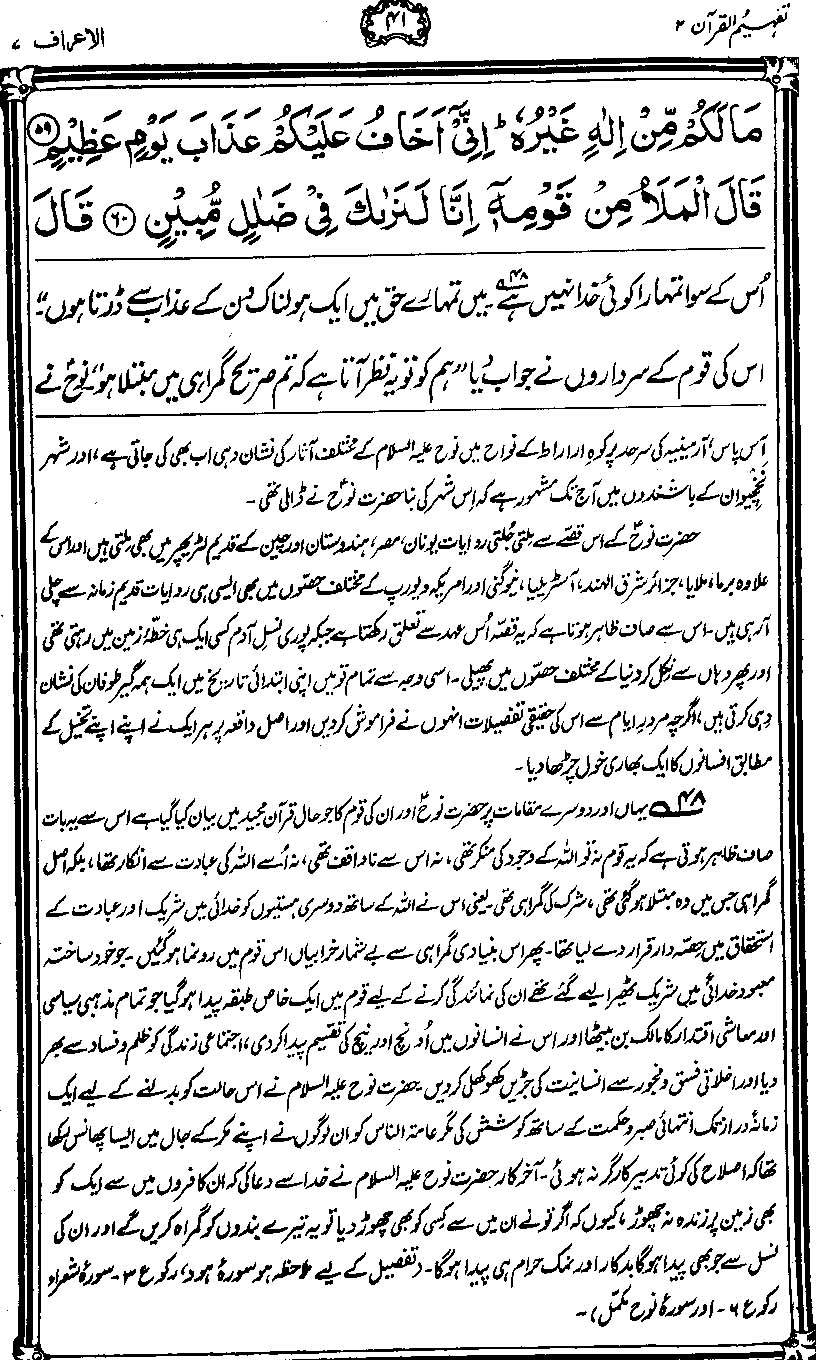 تفہیم القرآن ۲
۴۱
الاعراف ۷
مَا لَكُمْ مِّنْ اِلٰهٍ غَيْرُهٗ ؕ اِنِّيْۤ اَخَافُ عَلَيْكُمْ عَذَابَ يَوْمٍ عَظِيْمٍ ﴿۵۹﴾
قَالَ الْمَلَاُ مِنْ قَوْمِهٖۤ اِنَّا لَنَرٰىكَ فِيْ ضَلٰلٍ مُّبِيْنٍ ﴿۶۰﴾ قَالَ
اُس کے سوا تمہارا کوئی خدا نہیں ہے۴۸۔ میں تمہارے حق میں ایک ہولناک دن کے عذاب سے ڈرتا ہوں“۔
اس کی قوم کے سرداروں نے جواب دیا ”ہم کو تو یہ نظر آتا ہے کہ تم صریح گمراہی میں مبتلا ہو“۔ نوحؑ نے
آس پاس، آرمینیہ کی سرحد پر کوہِ اراراط کے نواح میں نوح علیہ السلام کے مختلف آثار کی نشان دہی اب بھی کی جاتی ہے، اور شہر
نخچیوان کے باشندوں میں آج تک مشہور ہے کہ اِس شہر کی بنا حضرت نوحؑ نے ڈالی تھی۔
حضرت نوحؑ کے اس قصے سے ملتی جُلتی روایات یونان، مصر، ہندوستان اور چین کے قدیم لٹریچر میں بھی ملتی ہیں اور اس کے
علاوہ برما، ملایا، جزائر شرق الہند، آسٹریلیا، نیوگنی اور امریکہ و یورپ کے مختلف حصوں میں بھی ایسی ہی روایات قدیم زمانہ سے چلی
آرہی ہیں۔ اس سے صاف ظاہر ہوتا ہے کہ یہ قصّہ اُس عہد سے تعلق رکھتا ہے جبکہ پوری نسلِ آدم کسی ایک ہی خطۂ زمین میں رہتی تھی
اور پھر وہاں سے نکل کر دنیا کے مختلف حصّوں میں پھیلی۔ اسی وجہ سے تمام قومیں اپنی ابتدائی تاریخ میں ایک ہمہ گیر طوفان کی نشان
دہی کرتی ہیں، اگرچہ مرورِ ایام سے اس کی حقیقی تفصیلات انہوں نے فراموش کر دیں اور اصل واقعہ پر ہر ایک نے اپنے اپنے تخیل کے
مطابق افسانوں کا ایک بھاری خول چڑھا دیا۔
۴۸ یہاں اور دوسرے مقامات پر حضرت نوحؑ اور ان کی قوم کا جو حال قرآن مجید میں بیان کیا گیا ہے اس سے یہ بات
صاف ظاہر ہوتی ہے کہ یہ قوم نہ تو اللہ کے وجود کی منکر تھی، نہ اس سے ناواقف تھی، نہ اُسے اللہ کی عبادت سے انکار تھا، بلکہ اصل
گمراہی جس میں وہ مبتلا ہو گئی تھی، شرک کی گمراہی تھی۔ یعنی اس نے اللہ کے ساتھ دوسری ہستیوں کو خدائی میں شریک اور عبادت کے
استحقاق میں حصّہ دار قرار دے لیا تھا۔ پھر اس بنیادی گمراہی سے بے شمار خرابیاں اس قوم میں رونما ہو گئیں۔ جو خود ساختہ
معبود خدائی میں شریک ٹھیرا لیے گئے تھے ان کی نمائندگی کرنے کے لیے قوم میں ایک خاص طبقہ پیدا ہو گیا جو تمام مذہبی سیاسی
اور معاشی اقتدار کا مالک بن بیٹھا اور اس نے انسانوں میں اُونچ اور نیچ کی تقسیم پیدا کر دی، اجتماعی زندگی کو ظلم و فساد سے بھر
دیا اور اخلاقی فسق و فجور سے انسانیت کی جڑیں کھوکھلی کر دیں۔ حضرت نوح علیہ السلام نے اس حالت کو بدلنے کے لیے ایک
زمانۂ دراز تک انتہائی صبر و حکمت کے ساتھ کوشش کی مگر عامۃ الناس کو ان لوگوں نے اپنے مکر کے جال میں ایسا پھانس رکھا
تھا کہ اصلاح کی کوئی تدبیر کارگر نہ ہوئی۔ آخر کار حضرت نوح علیہ السلام نے خدا سے دعا کی کہ ان کافروں میں سے ایک کو
بھی زمین پر زندہ نہ چھوڑ، کیوں کہ اگر تو نے ان میں سے کسی کو بھی چھوڑ دیا تو یہ تیرے بندوں کو گمراہ کریں گے اور ان کی
نسل سے جو بھی پیدا ہوگا بدکار اور نمک حرام ہی پیدا ہوگا۔ (تفصیل کے لیے ملاحظہ ہو سورۂ ہود، رکوع ۳۔ سورۂ شعراء
رکوع ۶۔ اور سورۂ نوح مکمّل)۔